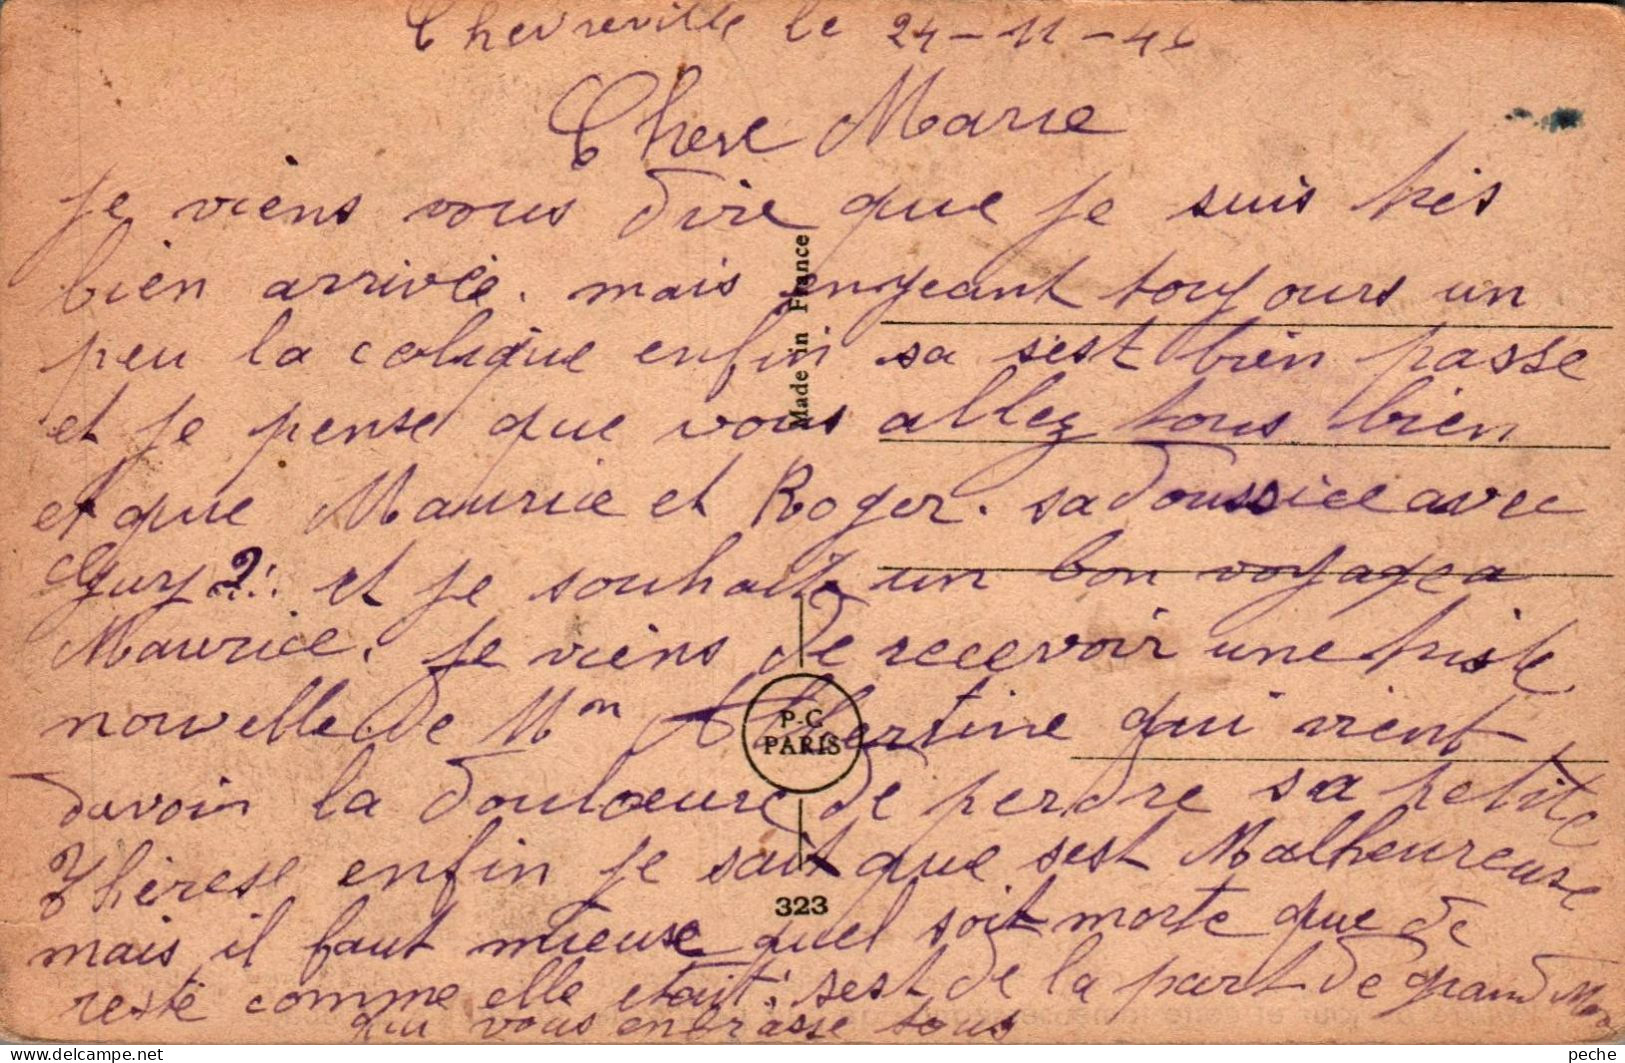 Chevreville le 24-11-46
Chere Marie
je viens vous dire que je suis très
bien arrivée. mais engeant toujours un
peu la colique enfin sa s'est bien passé
et je pense que vous allez tous bien
et que Maurice et Roger. sadoussice avec
Guy ?. et je souhaite un bon voyage a
Maurice. je viens de recevoir une triste
nouvelle de Mm Albertine qui vient
davoir la douloeure de perdre sa petite
Thérese enfin je sait que sest Malheureuse
mais il faut mieuse quel soit morte que de
resté comme elle etait. sest de la part de grand
qui vous enbrasse tous
Made in France
P-C
PARIS
323
peche